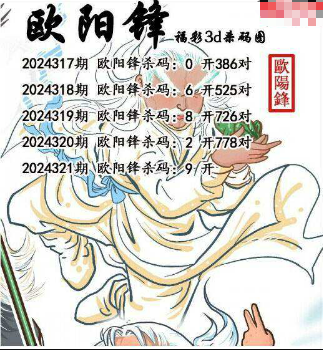 欧阳锋 福彩3d杀码图
2024317期 欧阳锋杀码：0 开386对
2024318期 欧阳锋杀码：6 开525对
2024319期 欧阳锋杀码：8 开726对
2024320期 欧阳锋杀码：2 开778对
2024321期 欧阳锋杀码：9 开
歐陽鋒